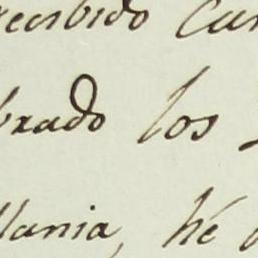 recibido Car
brado los
llania, hé